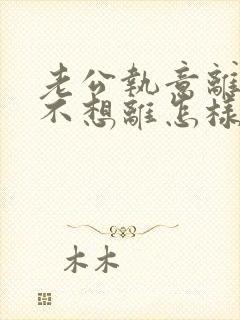 老公執意離
不想離怎樣
木木